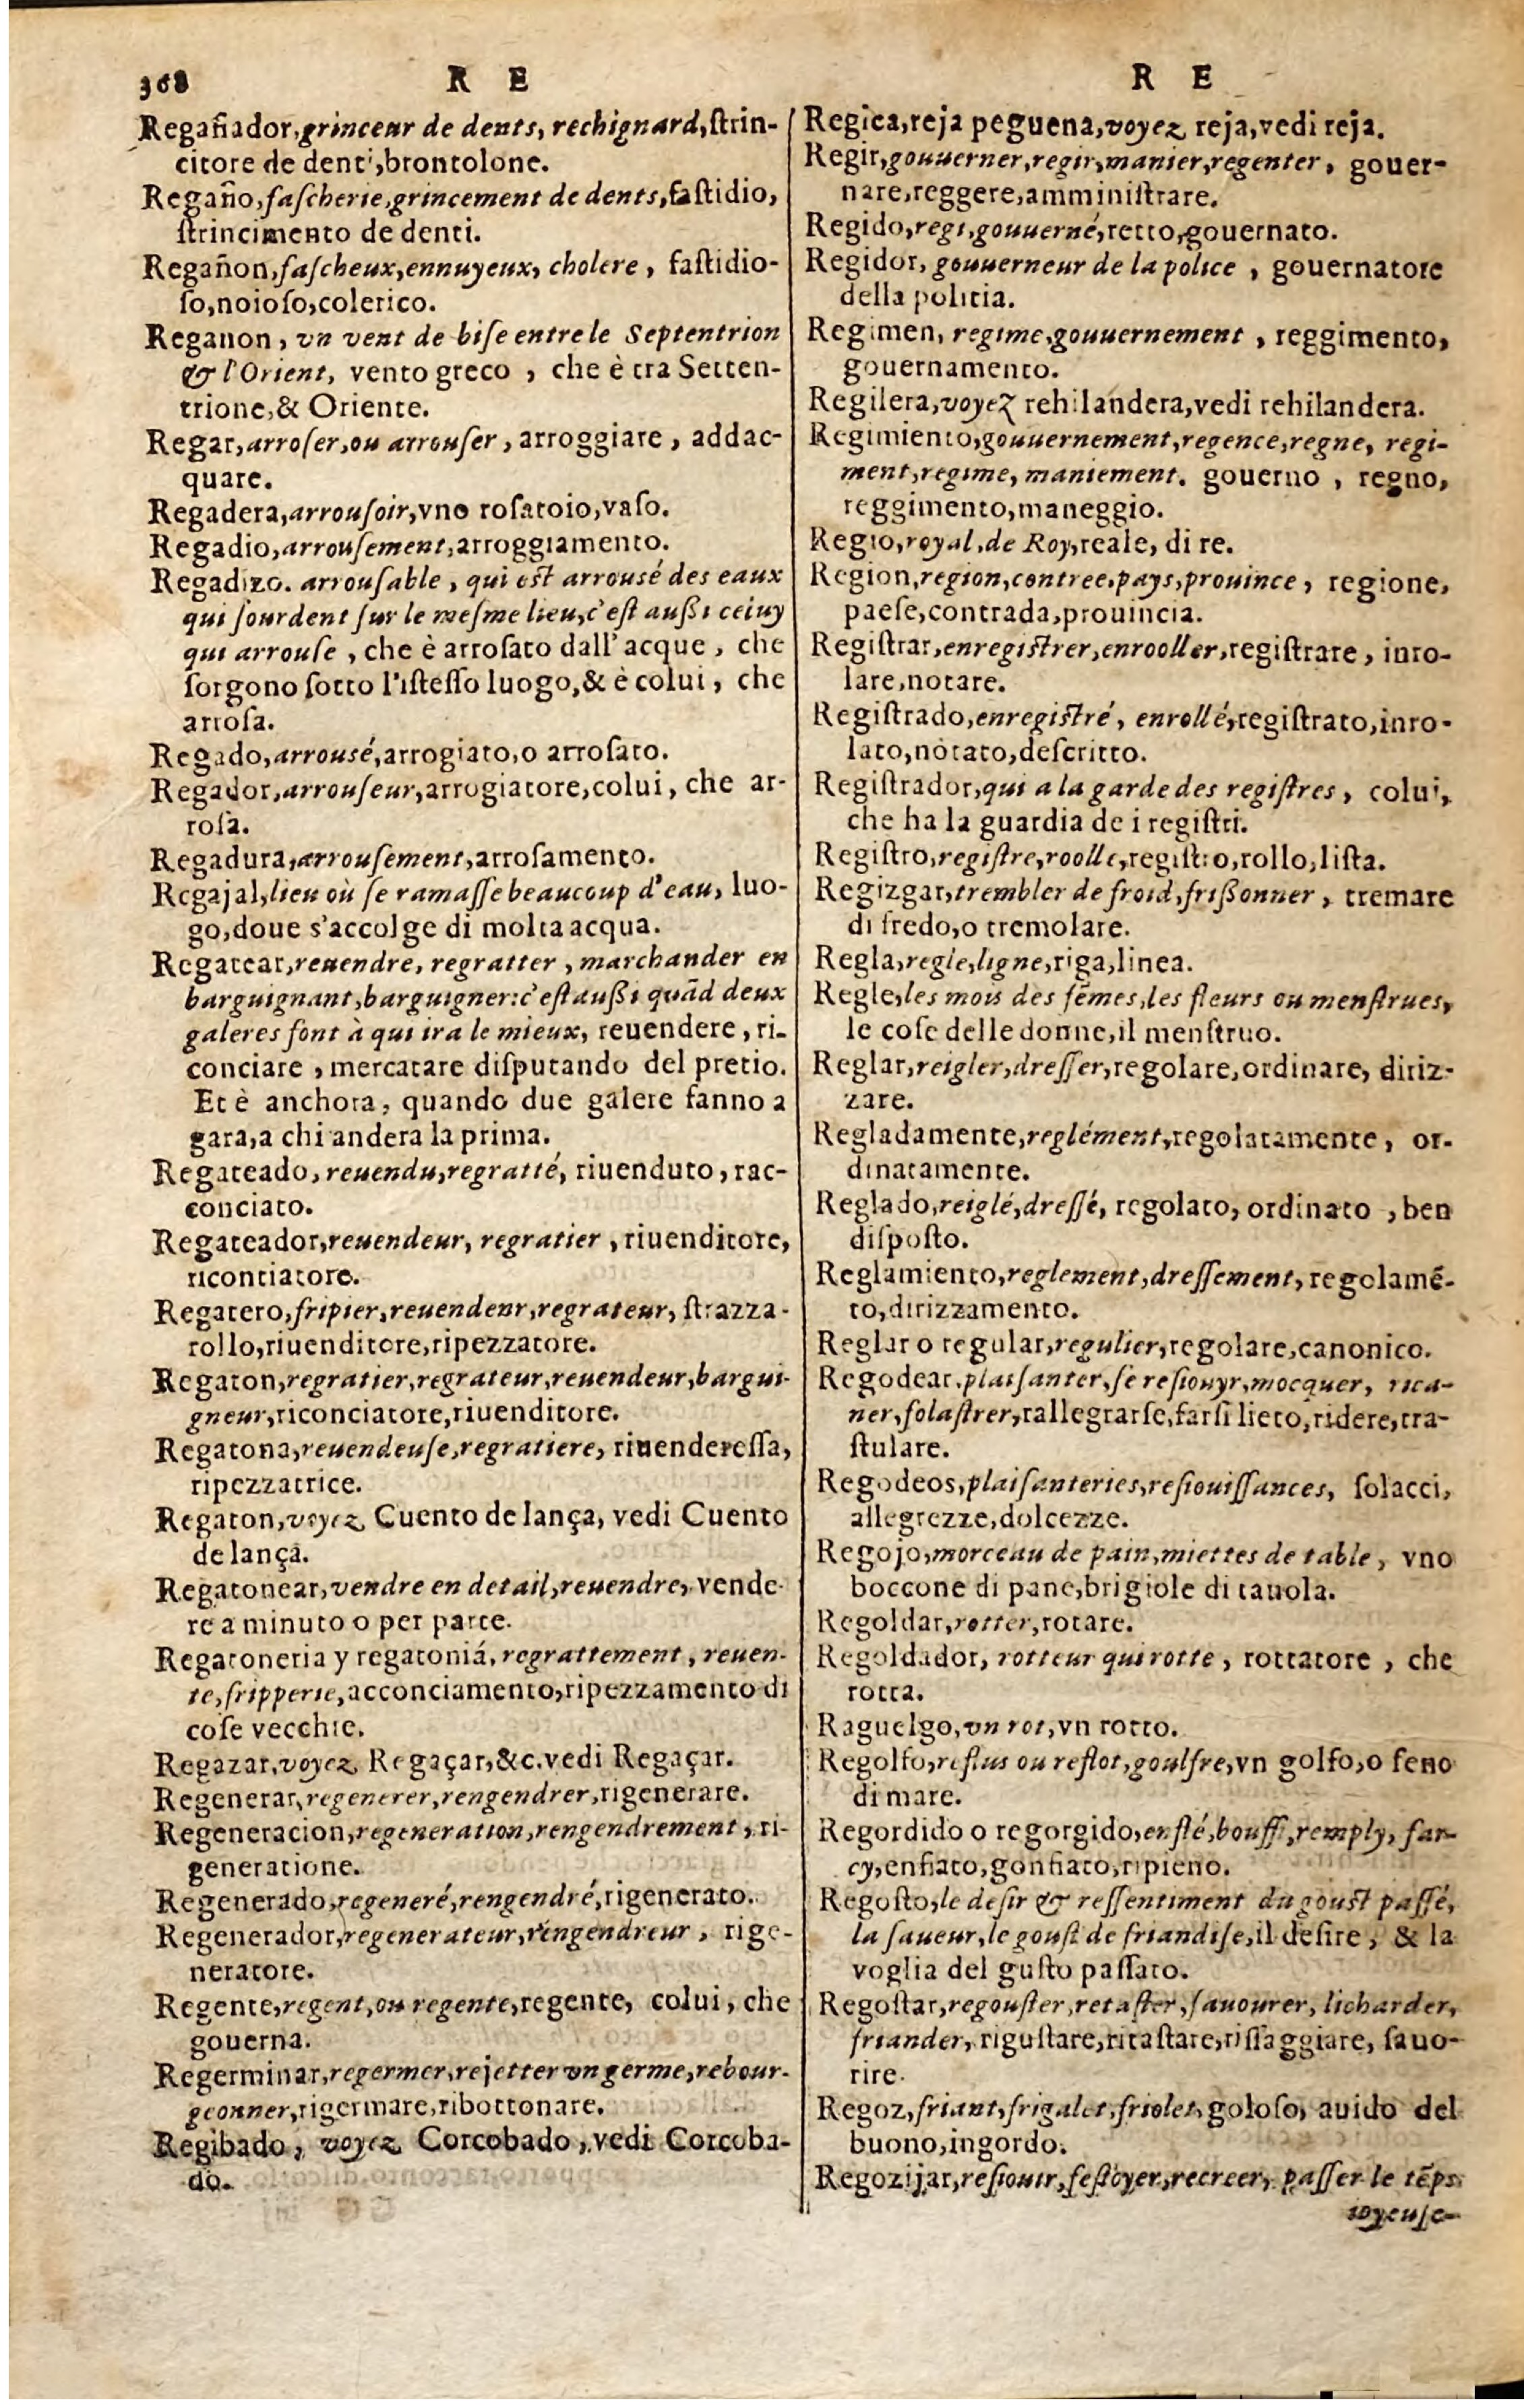 368
R E
Regañador, grinceur de dents, rechignard, ſtrin-
citore de denti, brontolone.
Regaño, faſcherie, grincement de dents, faſtidio,
ſtrincimento de denti.
Regañon, faſcheux, ennuyeux, cholere, faſtidio-
ſo, noioſo, colerico.
Reganon, vn vent de biſe entre le Septentrion
& l'Orient, vento greco, che è tra Setten-
trione, & Oriente.
Regar, arroſer, ou arrouſer, arroggiare, addac-
quare.
Regadera, arrouſoir, vno roſatoio, vaſo.
Regadio, arrouſement, arroggiamento.
Regadizo. arrouſable, qui est arrousé des eaux
qui ſourdent ſur le meſme lieu, c'eſt außi celuy
qui arrouſe, che è arroſato dall' acque, che
ſorgono ſotto l'iſteſſo luogo, & è colui, che
arroſa.
Regado, arrousé, arrogiato, o arroſato.
Regador, arrouſeur, arrogiatore, colui, che ar-
roſa.
Regadura, arrouſement, arroſamento.
Regajal, lieu où ſe ramaſſe beaucoup d'eau, luo-
go, doue s'accolge di molta acqua.
Regatear, reuendre, regratter, marchander en
barguignant, barguigner: c'eſt außi quãd deux
galeres font à qui ira le mieux, reuendere, ri-
conciare, mercatare diſputando del pretio.
Et è anchora, quando due galere fanno a
gara, a chi andera la prima.
Regateado, reuendu, regratté, riuenduto, rac-
conciato.
Regateador, reuendeur, regratier, riuenditore,
riconciatore.
Regatero, fripier, reuendeur, regrateur, ſtrazza-
rollo, riuenditore, ripezzatore.
Regaton, regratier, regrateur, reuendeur, bargui-
gneur, riconciatore, riuenditore.
Regatona, reuendeuſe, regratiere, riuendereſſa,
ripezzatrice.
Regaton, voyez Cuento de lança, vedi Cuento
de lança.
Regatonear, vendre en detail, reuendre, vende-
re a minuto o per parte.
Regatoneria y regatoniá, regrattement, reuen-
te, fripperie, acconciamento, ripezzamento di
coſe vecchie.
Regazar, voyez Regaçar, &c. vedi Regaçar.
Regenerar, regenerer, rengendrer, rigenerare.
Regeneracion, regeneration, rengendrement, ri-
generatione.
Regenerado, regeneré, rengendré, rigenerato.
Regenerador, regenerateur, rengendreur, rige-
neratore.
Regente, regent, ou regente, regente, colui, che
gouerna.
Regerminar, regermer, rejetter vn germe, rebour-
geonner, rigermare, ribottonare.
Regibado, voyez Corcobado, vedi Corcoba-
do.
R E
Regica, reja peguena, voyez reja, vedi reja.
Regir, gouuerner, regir, manier, regenter, gouer-
nare, reggere, amminiſtrare.
Regido, regi, gouuerné, retto, gouernato.
Regidor, gouuerneur de la police, gouernatore
della politia.
Regimen, regime, gouuernement, reggimento,
gouernamento.
Regilera, voyez rehilandera, vedi rehilandera.
Regimiento, gouuernement, regence, regne, regi-
ment, regime, maniement. gouerno, regno,
reggimento, maneggio.
Regio, royal, de Roy, reale, di re.
Region, region, contree, pays, prouince, regione,
paeſe, contrada, prouincia.
Regiſtrar, enregiſtrer, enrooller, regiſtrare, inro-
lare, notare.
Regiſtrado, enregiſtré, enrollé, regiſtrato, inro-
lato, notato, deſcritto.
Regiſtrador, qui a la garde des regiſtres, colui,
che ha la guardia de i regiſtri.
Regiſtro, regiſtre, roolle, regiſtro, rollo, liſta.
Regizgar, trembler de froid, frißonner, tremare
di fredo, o tremolare.
Regla, regle, ligne, riga, linea.
Regle, les mois des fẽmes, les fleurs ou menſtrues,
le coſe delle donne, il menſtruo.
Reglar, reigler, dreſſer, regolare, ordinare, diriz-
zare.
Regladamente, reglément, regolatamente, or-
dinatamente.
Reglado, reiglé, dreſſé, regolato, ordinato, ben
diſpoſto.
Reglamiento, reglement, dreſſement, regolamẽ-
to, dirizzamento.
Reglar o regular, regulier, regolare, canonico.
Regodear. plaiſanter, ſe reſiouyr, mocquer, rica-
ner, folaſtrer, rallegrarſe, farſi lieto, ridere, tra-
ſtulare.
Regodeos, plaiſanteries, reſiouiſſances, ſolacci,
allegrezze, dolcezze.
Regojo, morceau de pain, miettes de table, vno
boccone di pane, brigiole di tauola.
Regoldar, rotter, rotare.
Regoldador, rotteur qui rotte, rottatore, che
rotta.
Raguelgo, vn rot, vn rotto.
Regolfo, reflus ou reflot, goulfre, vn golfo, o ſeno
di mare.
Regordido o regorgido, enflé, bouffi, remply, far-
cy, enfiato, gonfiato, ripieno.
Regoſto, le deſir & reſſentiment du gouſt paſſé,
la ſaueur, le gouſt de friandiſe, il deſire, & la
voglia del guſto paſſato.
Regoſtar, regouſter, retaſter, ſauourer, licharder,
friander, riguſtare, ritaſtare, riſſaggiare, ſauo-
rire.
Regoz, friant, frigalet, friolet, goloſo, auido del
buono, ingordo.
Regozijar, reſiouir, feſtoyer, recreer, paſſer le tẽps
ioyeuſe-